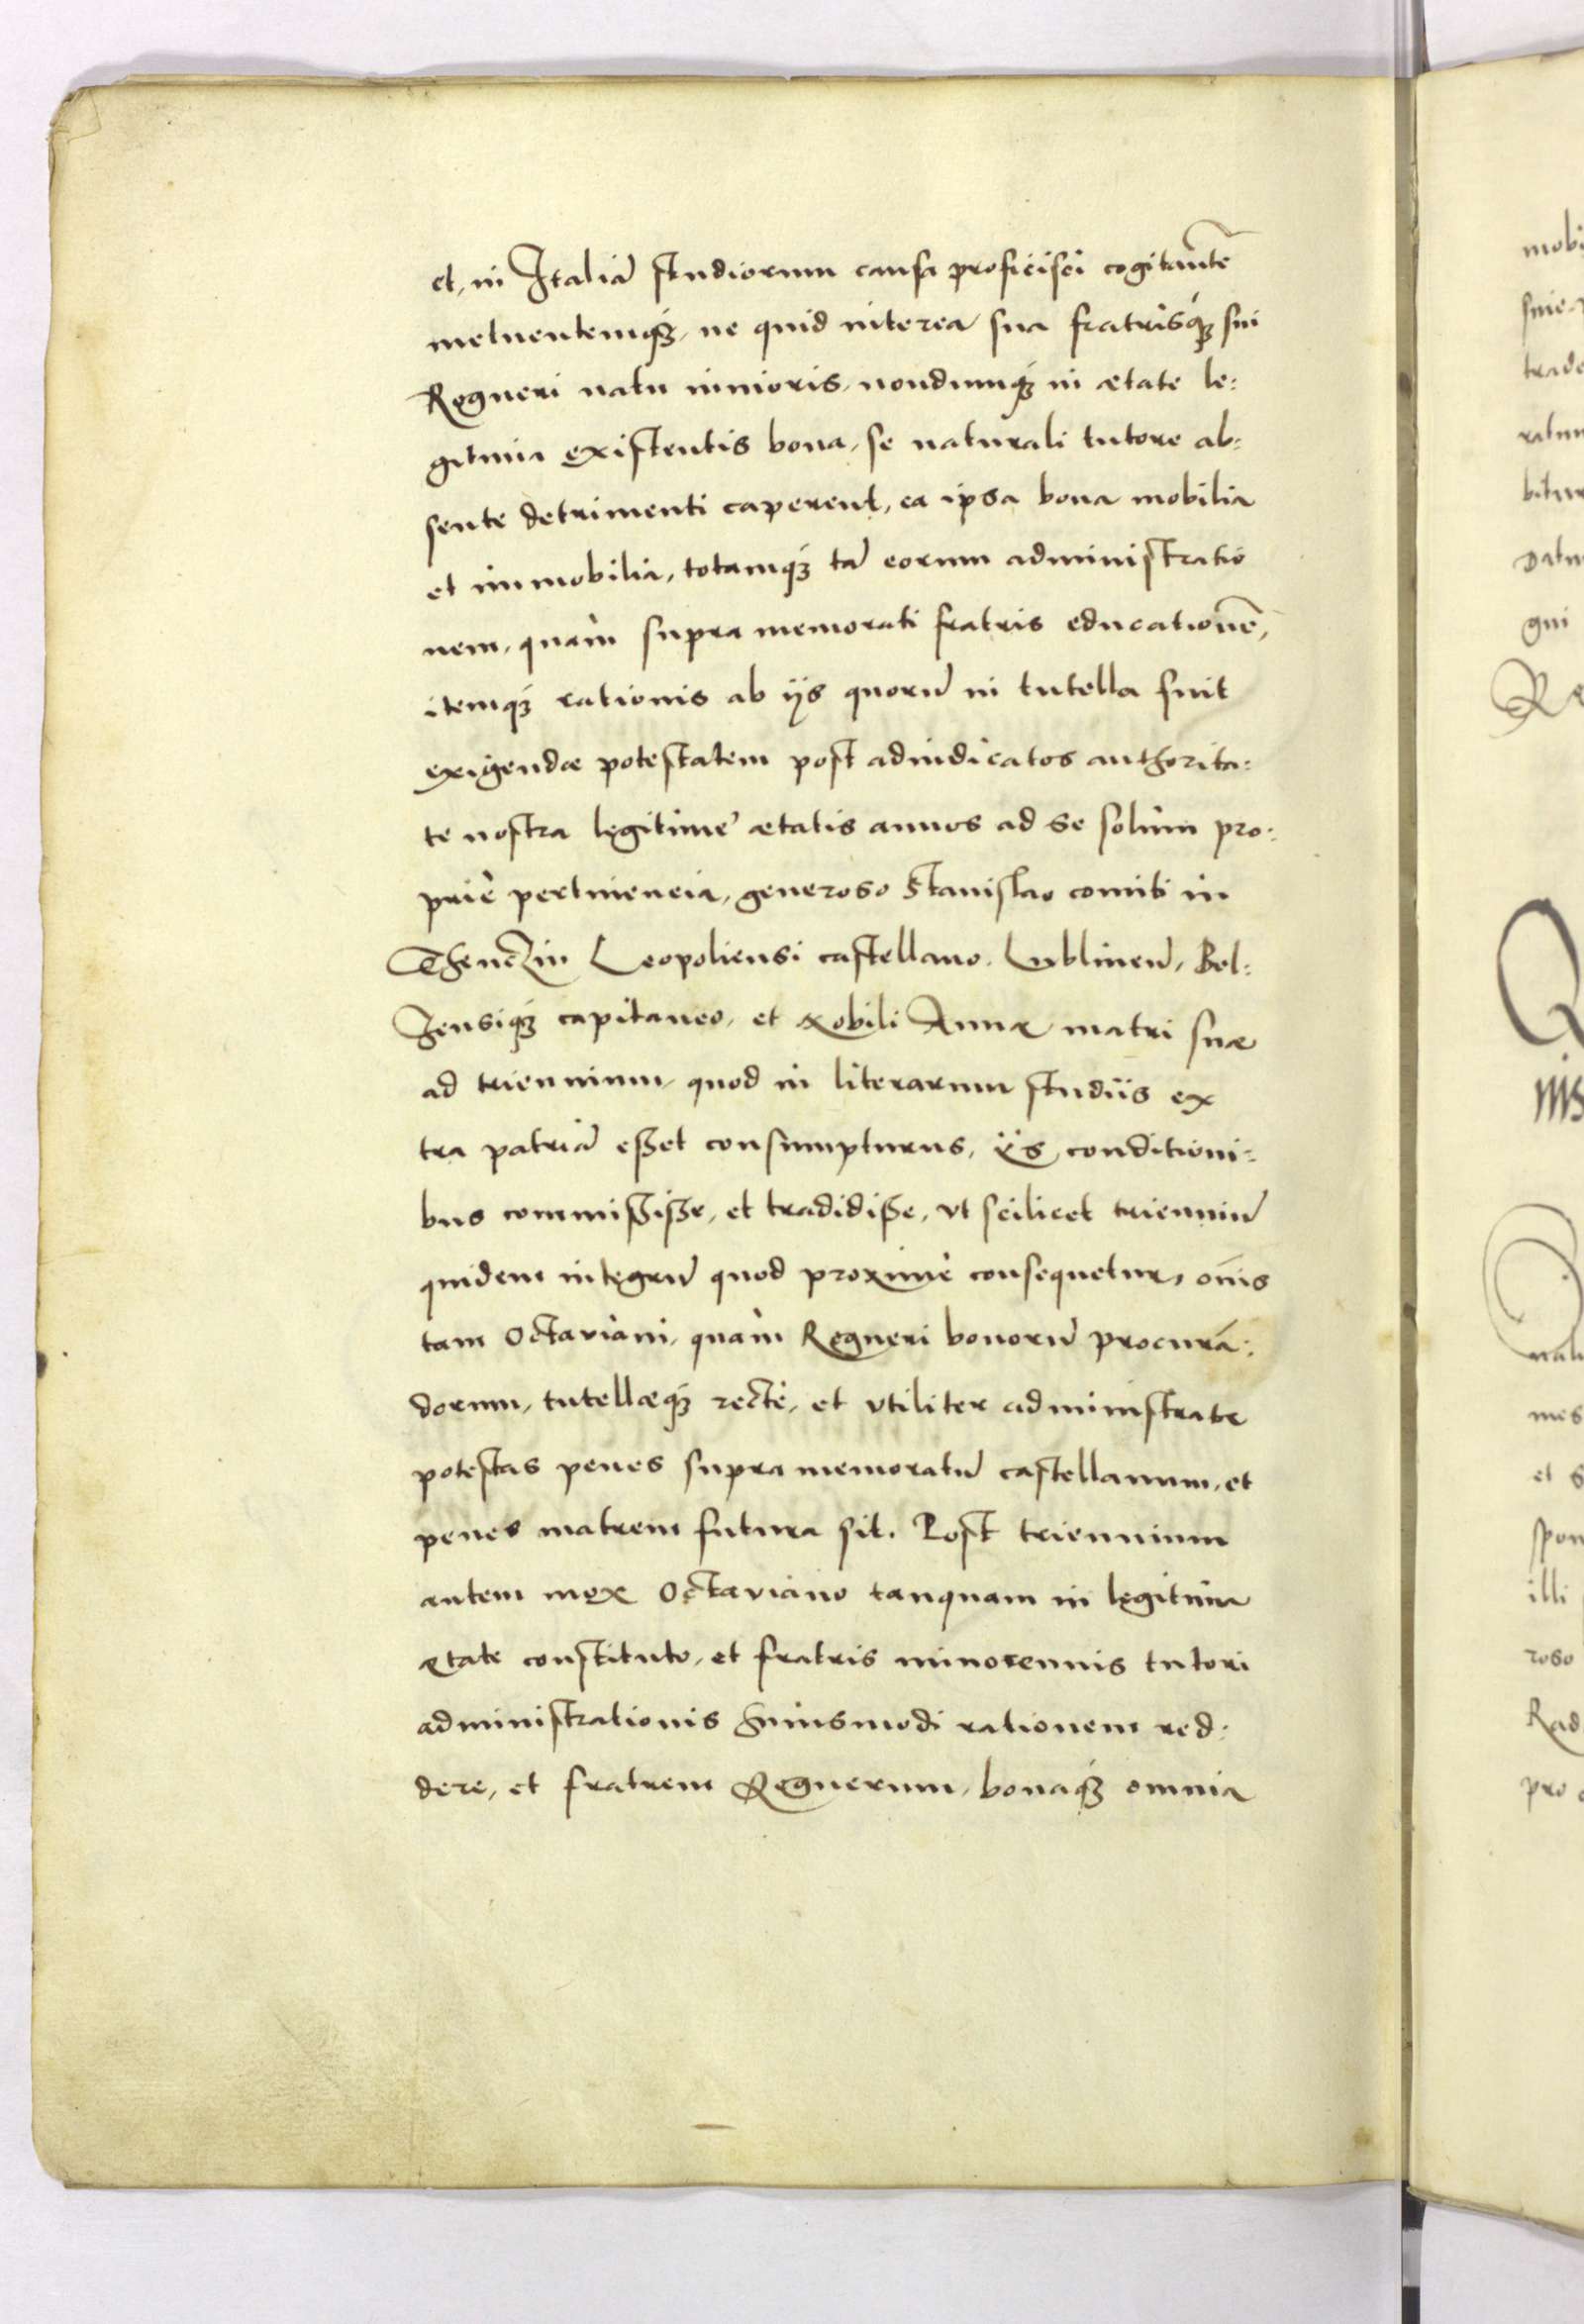 et, in Italiā studiorum causa proficisci cogitantē
metuentemq́ꝫ, ne quid interea sua fratrisq́ꝫ sui
Regneri natu iunioris, nondumq́ꝫ in ætate le:
gitima existentis bona, se naturali tutore ab:
sente detrimenti caperent, ea ipsa bona mobilia
et immobilia, totamq́ꝫ tā eorum administratio
nem, quàm supra memorati fratris educationē,
itemq́ꝫ rationis ab ijs quorū in tutella fuit
exigendæ potestatem post adiudicatos authorita:
te nostra legitimę ætatis annos ad se solùm pro:
priè pertinencia, generoso Stanislao comiti in
Thenczin Leopoliensi castellano. Lublinen̄, Bel:
zensiq́ꝫ capitaneo, et Nobili Annæ matri suæ
ad triennium, quod in literarum studijs ex
tra patriā esset consumpturus, ijs conditioni:
bus commississe, et tradidisse, vt scilicet trienniū
quidem integrū quod proximè consequetur, om̄is
tam Octaviani, quàm Regneri bonorū procurā:
dorum, tutellæq́ꝫ rectè, et vtiliter administratę
potestas penes supra memoratū castellanum, et
penes matrem futura sit. Post triennium
autem mox Octaviano tanquam in legitima
ętate constituto, et fratris minorennis tutori
administrationis huiusmodi rationem red:
dere, et fratrem Regnerum, bonaq́ꝫ omnia
mobi
trade
gui
Q
mes
et s
spon
illi
roso
Rad
pro